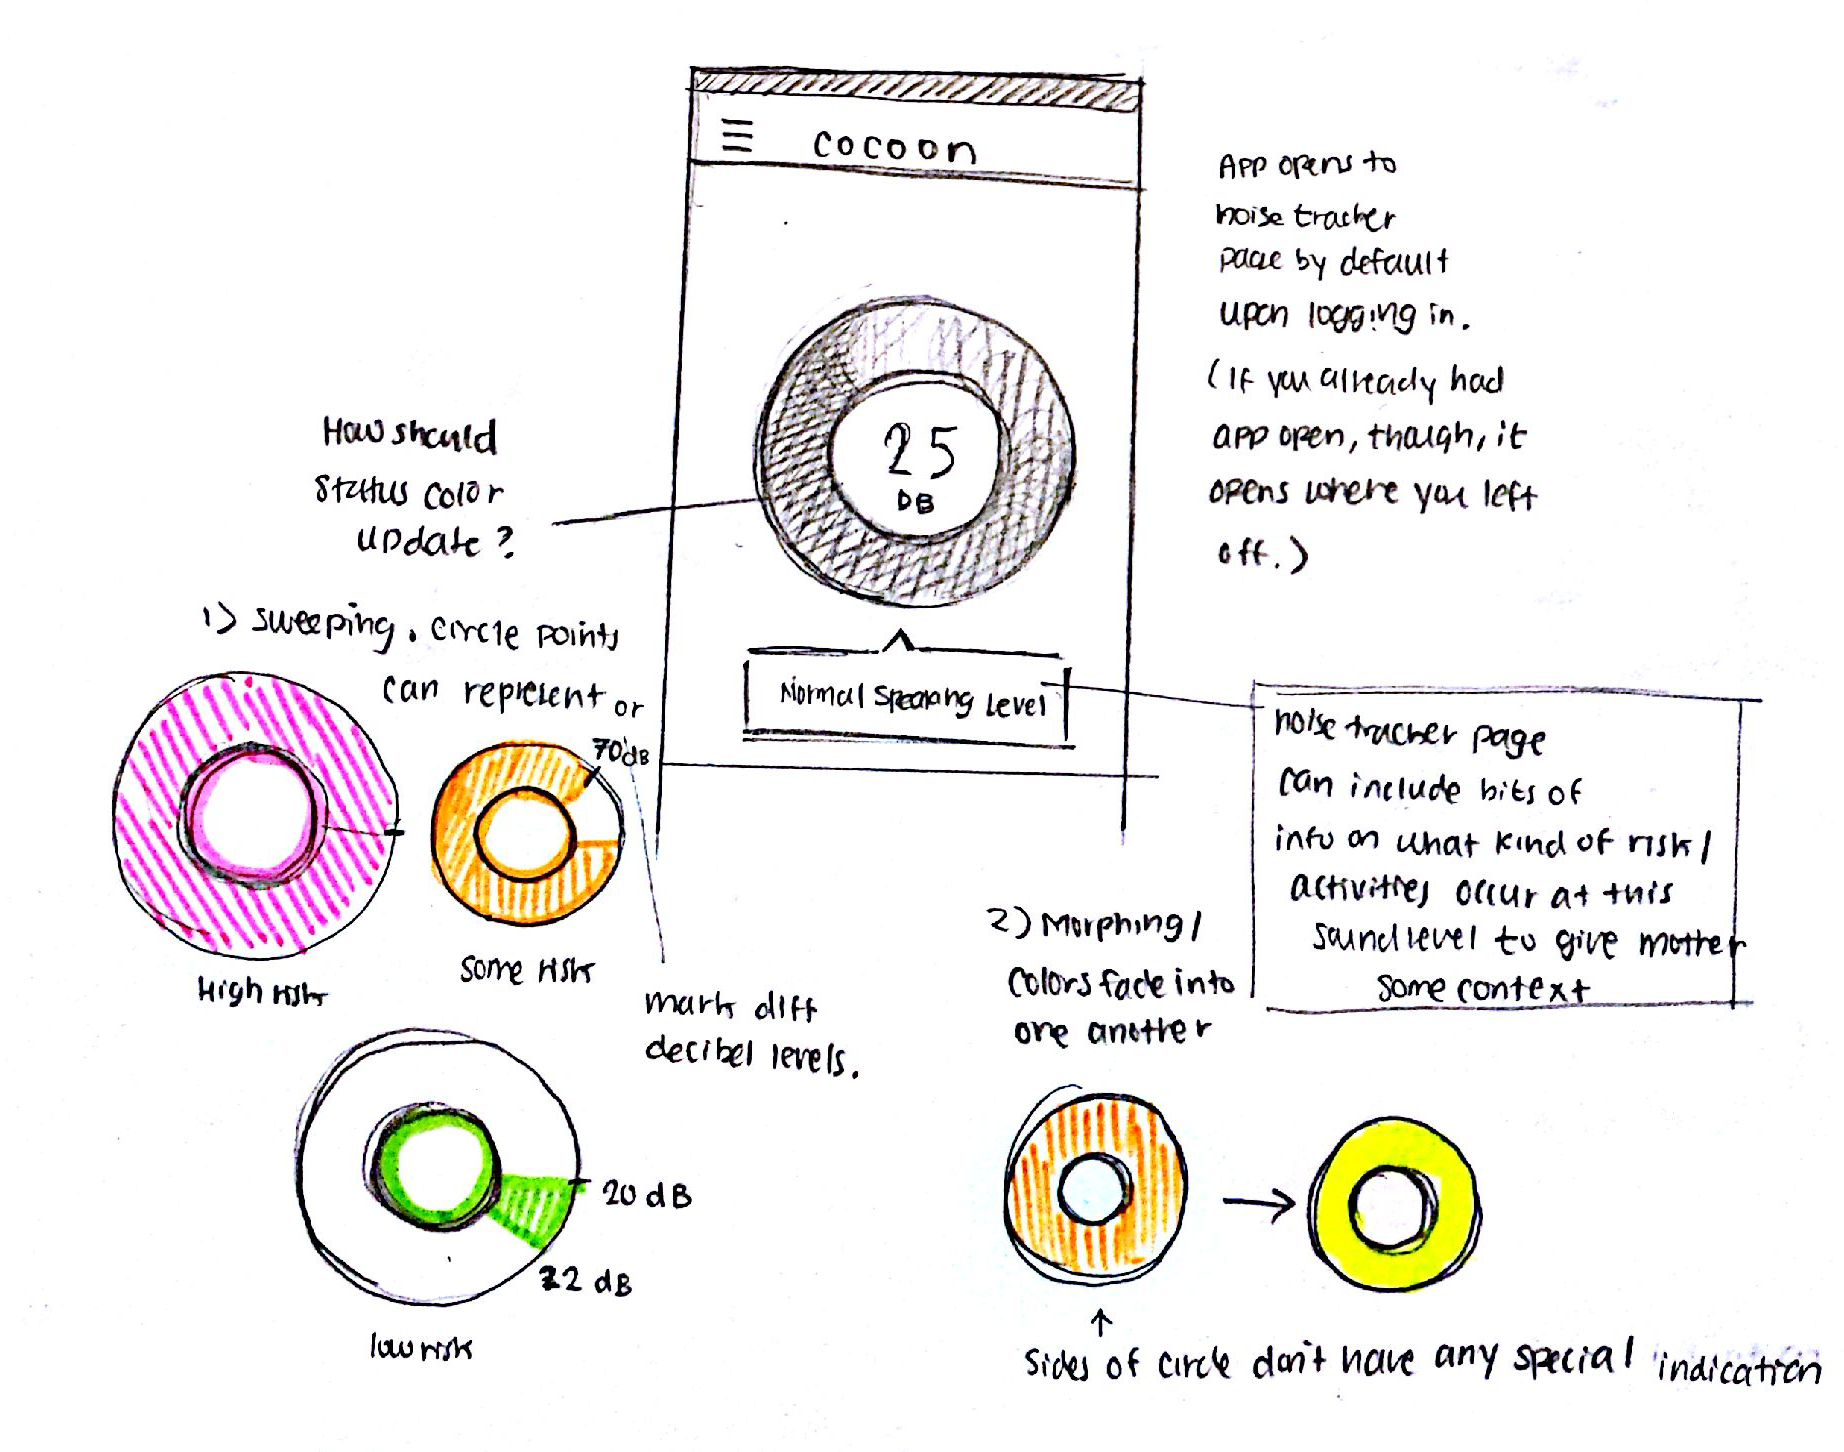 cocoon
25
DB
Normal Speaking Level
App opens to
noise tracker
page by default
upon logging in.
(If you already had
app open, though, it
opens where you left
off.)
How should
status color
update?
1) sweeping. circle points
can represent or
70dB
High risk
some risk
mark diff
decibel levels.
20 dB
22 dB
low risk
noise tracker page
can include bits of
info on what kind of risk/
activities occur at this
sound level to give mother
some context
2) Morphing/
colors fade into
one another
↑
sides of circle don't have any special indication